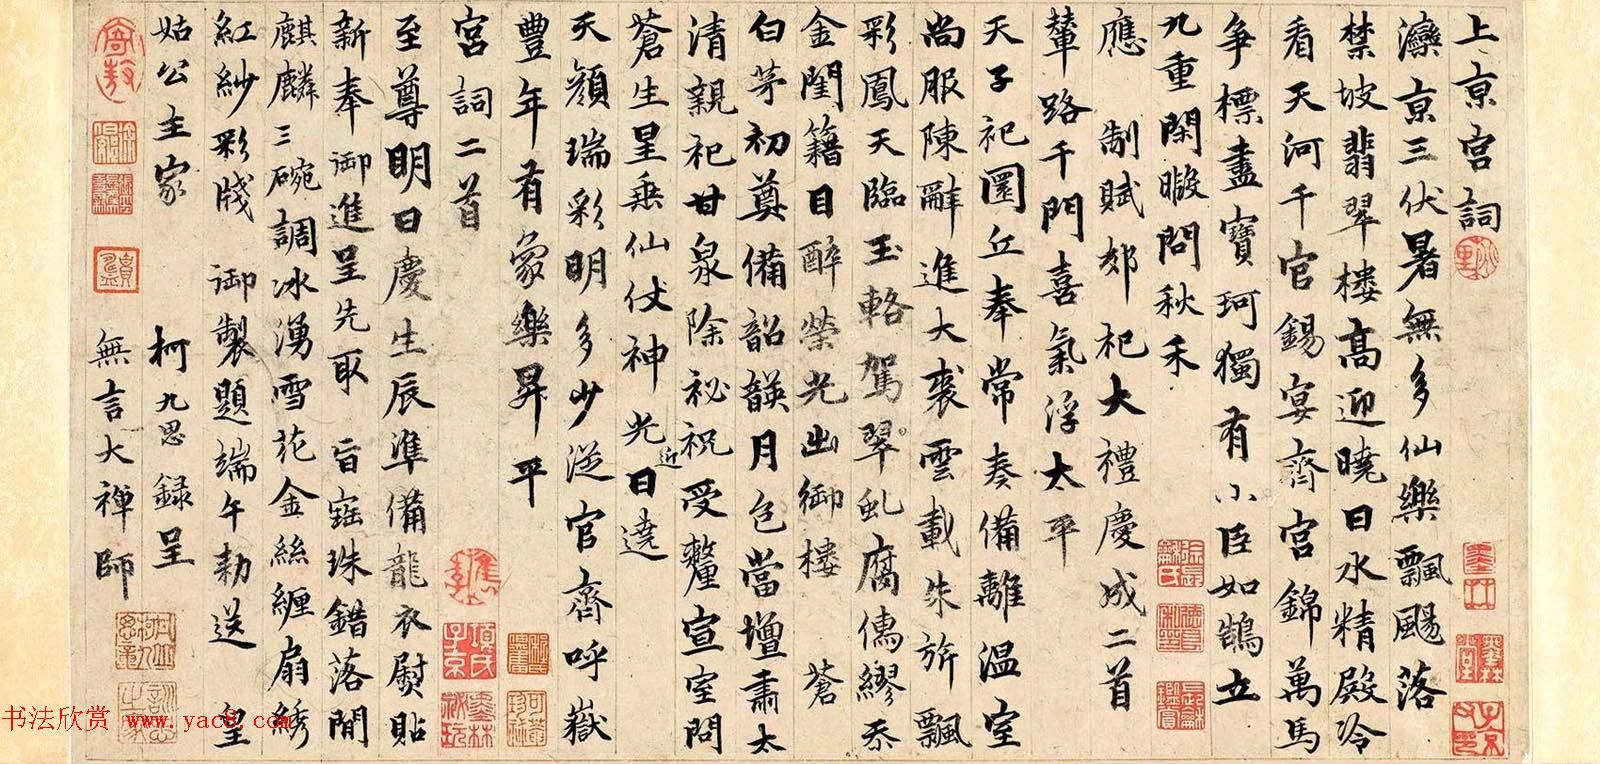 上京宮詞
灤京三伏暑無多仙樂飄颺落
禁坡翡翠樓高迎曉日水精殿冷
看天河千官錫宴齊宮錦萬馬
爭標盡寶珂獨有小臣如鵠立
九重閑暇問秋禾
應制賦郊祀大禮慶成二首
輦路千門喜氣浮太平
天子祀圜丘奉常奏備離溫室
尚服陳辭進大裘雲載朱旂飄
彩鳳天臨玉輅駕翠虬腐儒繆忝
金閨籍目醉榮光出御樓 蒼
白茅初奠備韶韺月色當壇肅太
清親祀甘泉除祕祝受釐宣室問
蒼生皇乘仙仗神光近日遶
天顏瑞彩明多少從官齊呼嶽
豐年有象樂昇平
宮詞二首
至尊明日慶生辰準備龍衣熨貼
新奉御進呈先取旨䍃珠錯落閒
麒麟三碗調冰湧雪花金絲纏扇綉
紅紗彩牋御製題端午勅送皇
姑公主家
柯九思録呈
無言大禅師
書法欣赏 www.yac8.com